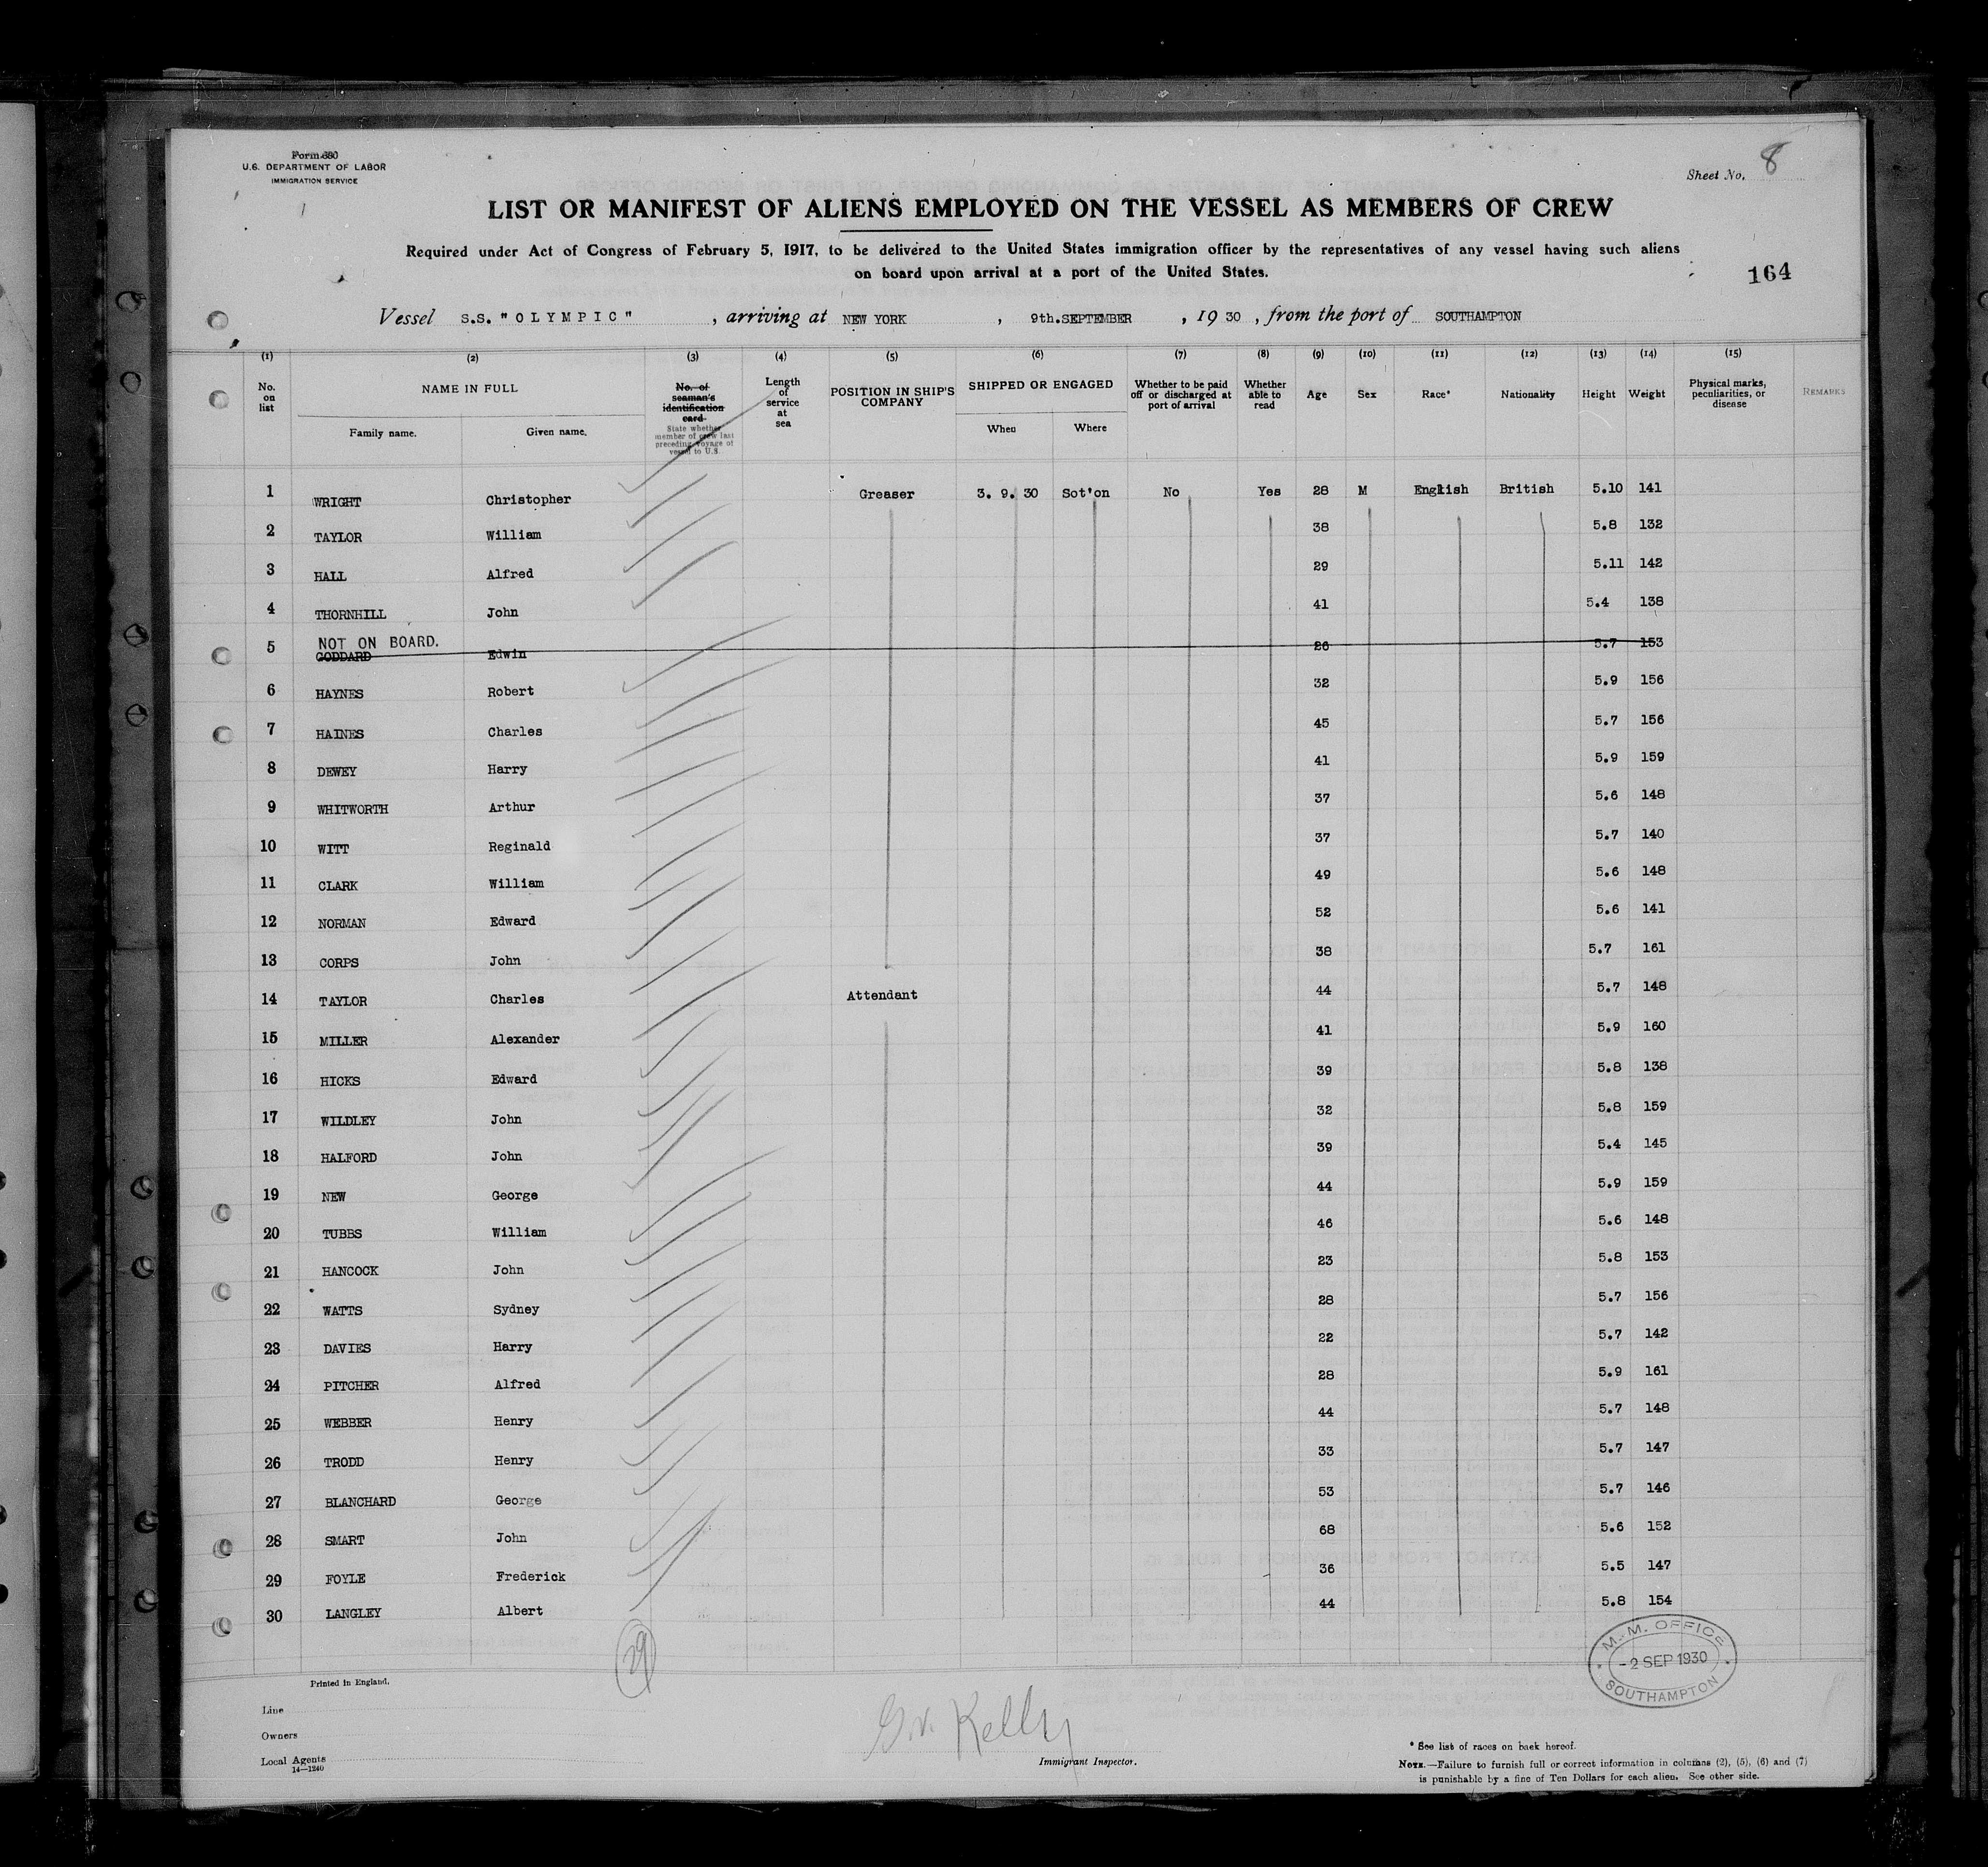 Form 680
U.S. DEPARTMENT OF LABOR
IMMIGRATION SERVICE
Sheet No. 8
LIST OR MANIFEST OF ALIENS EMPLOYED ON THE VESSEL AS MEMBERS OF CREW
Required under Act of Congress of February 5, 1917, to be delivered to the United States immigration officer by the representatives of any vessel having such aliens
on board upon arrival at a port of the United States.
164
Vessel S.S. "OLYMPIC", arriving at NEW YORK, 9th.SEPTEMBER, 1930, from the port of SOUTHAMPTON
(1) (2) (3) (4) (5) (6) (7) (8) (9) (10) (11) (12) (13) (14) (15)
No. on list NAME IN FULL No. of seaman's identification card Length of service at sea POSITION IN SHIP'S COMPANY SHIPPED OR ENGAGED Whether to be paid off or discharged at port of arrival Whether able to read Age Sex Race* Nationality Height Weight Physical marks, peculiarities, or disease REMARKS
Family name. Given name. State whether member of crew last preceding voyage of vessel to U.S. When Where
1 WRIGHT Christopher Greaser 3. 9. 30 Sot'on No Yes 28 M English British 5.10 141
2 TAYLOR William 38 5.8 132
3 HALL Alfred 29 5.11 142
4 THORNHILL John 41 5.4 138
NOT ON BOARD.
5 GODDARD Edwin 26 5.7 153
6 HAYNES Robert 32 5.9 156
7 HAINES Charles 45 5.7 156
8 DEWEY Harry 41 5.9 159
9 WHITWORTH Arthur 37 5.6 148
10 WITT Reginald 37 5.7 140
11 CLARK William 49 5.6 148
12 NORMAN Edward 52 5.6 141
13 CORPS John 38 5.7 161
14 TAYLOR Charles Attendant 44 5.7 148
15 MILLER Alexander 41 5.9 160
16 HICKS Edward 39 5.8 138
17 WILDLEY John 32 5.8 159
18 HALFORD John 39 5.4 145
19 NEW George 44 5.9 159
20 TUBBS William 46 5.6 148
21 HANCOCK John 23 5.8 153
22 WATTS Sydney 28 5.7 156
23 DAVIES Harry 22 5.7 142
24 PITCHER Alfred 28 5.9 161
25 WEBBER Henry 44 5.7 148
26 TRODD Henry 33 5.7 147
27 BLANCHARD George 53 5.7 146
28 SMART John 68 5.6 152
29 FOYLE Frederick 36 5.5 147
30 LANGLEY Albert 44 5.8 154
29
M.M. OFFICE
- 2 SEP 1930
SOUTHAMPTON
Printed in England.
Line
Owners
Local Agents
14—1240
G.V. Kelly
Immigrant Inspector.
* See list of races on back hereof.
NOTE.—Failure to furnish full or correct information in columns (2), (5), (6) and (7)
is punishable by a fine of Ten Dollars for each alien. See other side.